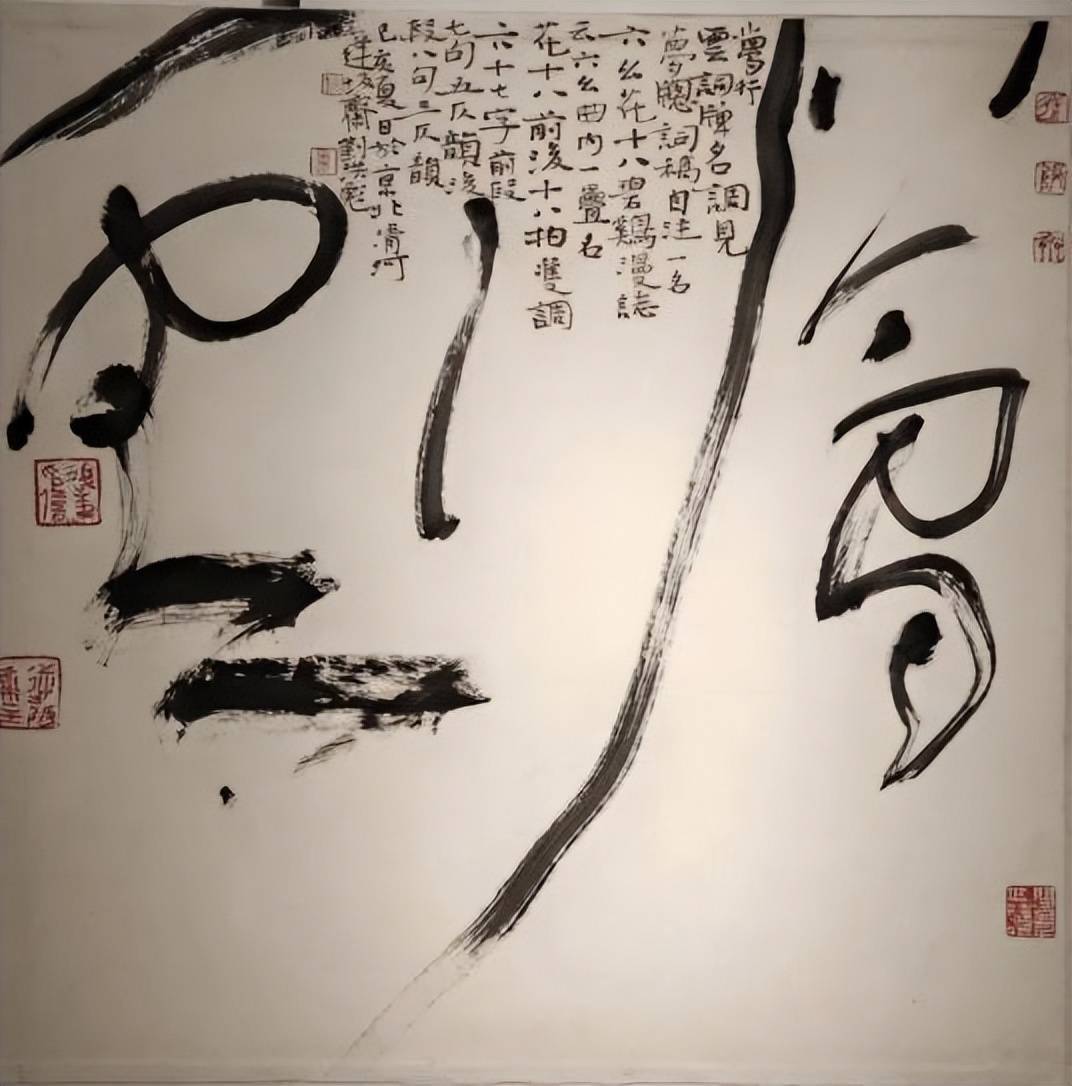 夢
行
雲
夢行
雲詞牌名調見
夢牕詞稿自注一名
六幺花十八碧鷄漫誌
云六幺曲内一疊名
花十八前後十八拍雙調
六十七字前段
七句五仄韻後
段八句三仄韻
己亥夏日於京北清河
逆坂齋劉洪彪